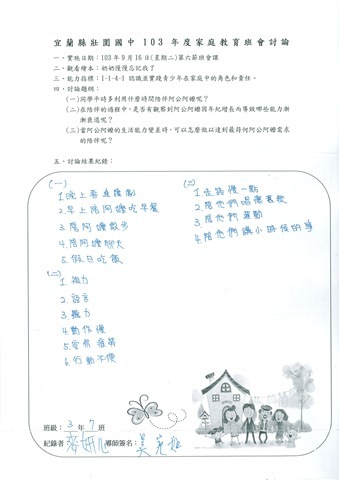 宜蘭縣壯圍國中 103 年度家庭教育班會討論
一、實施日期：103年9月16日(星期二)第六節班會課
二、觀看繪本：奶奶慢慢忘記我了
三、能力指標：1-1-4-1 認識並實踐青少年在家庭中的角色和責任。
四、討論題綱：
(一)同學平時多利用什麼時間陪伴阿公阿嬤呢？
(二)在陪伴的過程中，是否有觀察到阿公阿嬤因年紀增長而導致哪些能力漸漸衰退呢？
(三)當阿公阿嬤的生活能力變差時，可以怎麼做以達到最符合阿公阿嬤需求的陪伴呢？
五、討論結果紀錄：
(一)
1.晚上看連續劇
2.早上陪阿嬤吃早餐
3.陪阿嬤散步
4.陪阿嬤聊天
5.假日吃飯
(二)
1.視力
2.語言
3.聽力
4.動作慢
5.容易痠痛
6.行動不便
(三)
1.走路慢一點
2.陪他們唱懷舊歌
3.陪他們運動
4.陪他們講小時候的事
班級：3年7班
紀錄者 導師簽名：吳